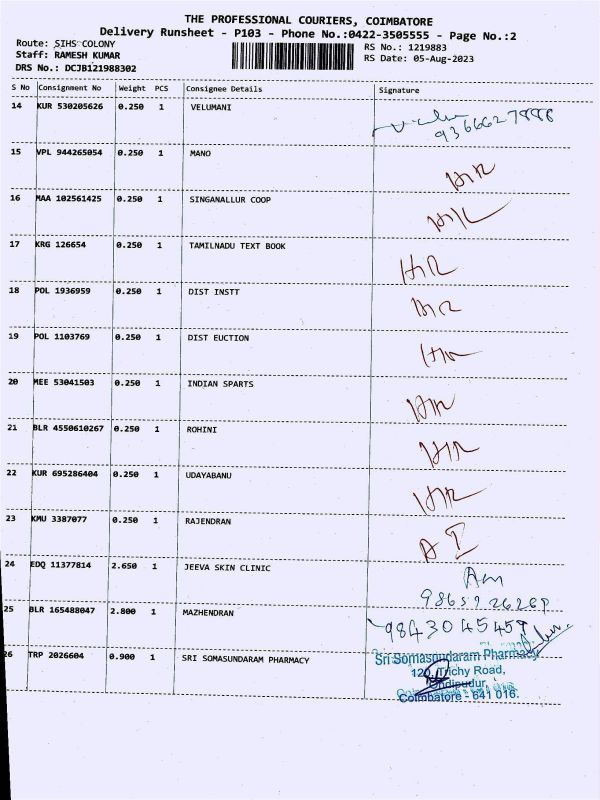 THE PROFESSIONAL COURIERS, COIMBATORE
Delivery Runsheet - P103 - Phone No.:0422-3505555 - Page No.:2
Route: SIHS COLONY
Staff: RAMESH KUMAR
DRS No.: DCJB121988302
RS No.: 1219883
RS Date: 05-Aug-2023
S No Consignment No Weight PCS Consignee Details Signature
14 KUR 530205626 0.250 1 VELUMANI
15 VPL 944265054 0.250 1 MANO
16 MAA 102561425 0.250 1 SINGANALLUR COOP
17 KRG 126654 0.250 1 TAMILNADU TEXT BOOK
18 POL 1936959 0.250 1 DIST INSTT
19 POL 1103769 0.250 1 DIST EUCTION
20 MEE 53041503 0.250 1 INDIAN SPARTS
21 BLR 4550610267 0.250 1 ROHINI
22 KUR 695286404 0.250 1 UDAYABANU
23 KMU 3387077 0.250 1 RAJENDRAN
24 EDQ 11377814 2.650 1 JEEVA SKIN CLINIC
25 BLR 165488047 2.800 1 MAZHENDRAN
9843045457
26 TRP 2026604 0.900 1 SRI SOMASUNDARAM PHARMACY
Sri Somasundaram Pharmacy
120, Trichy Road,
Ondipudur,
Coimbatore - 641 016.